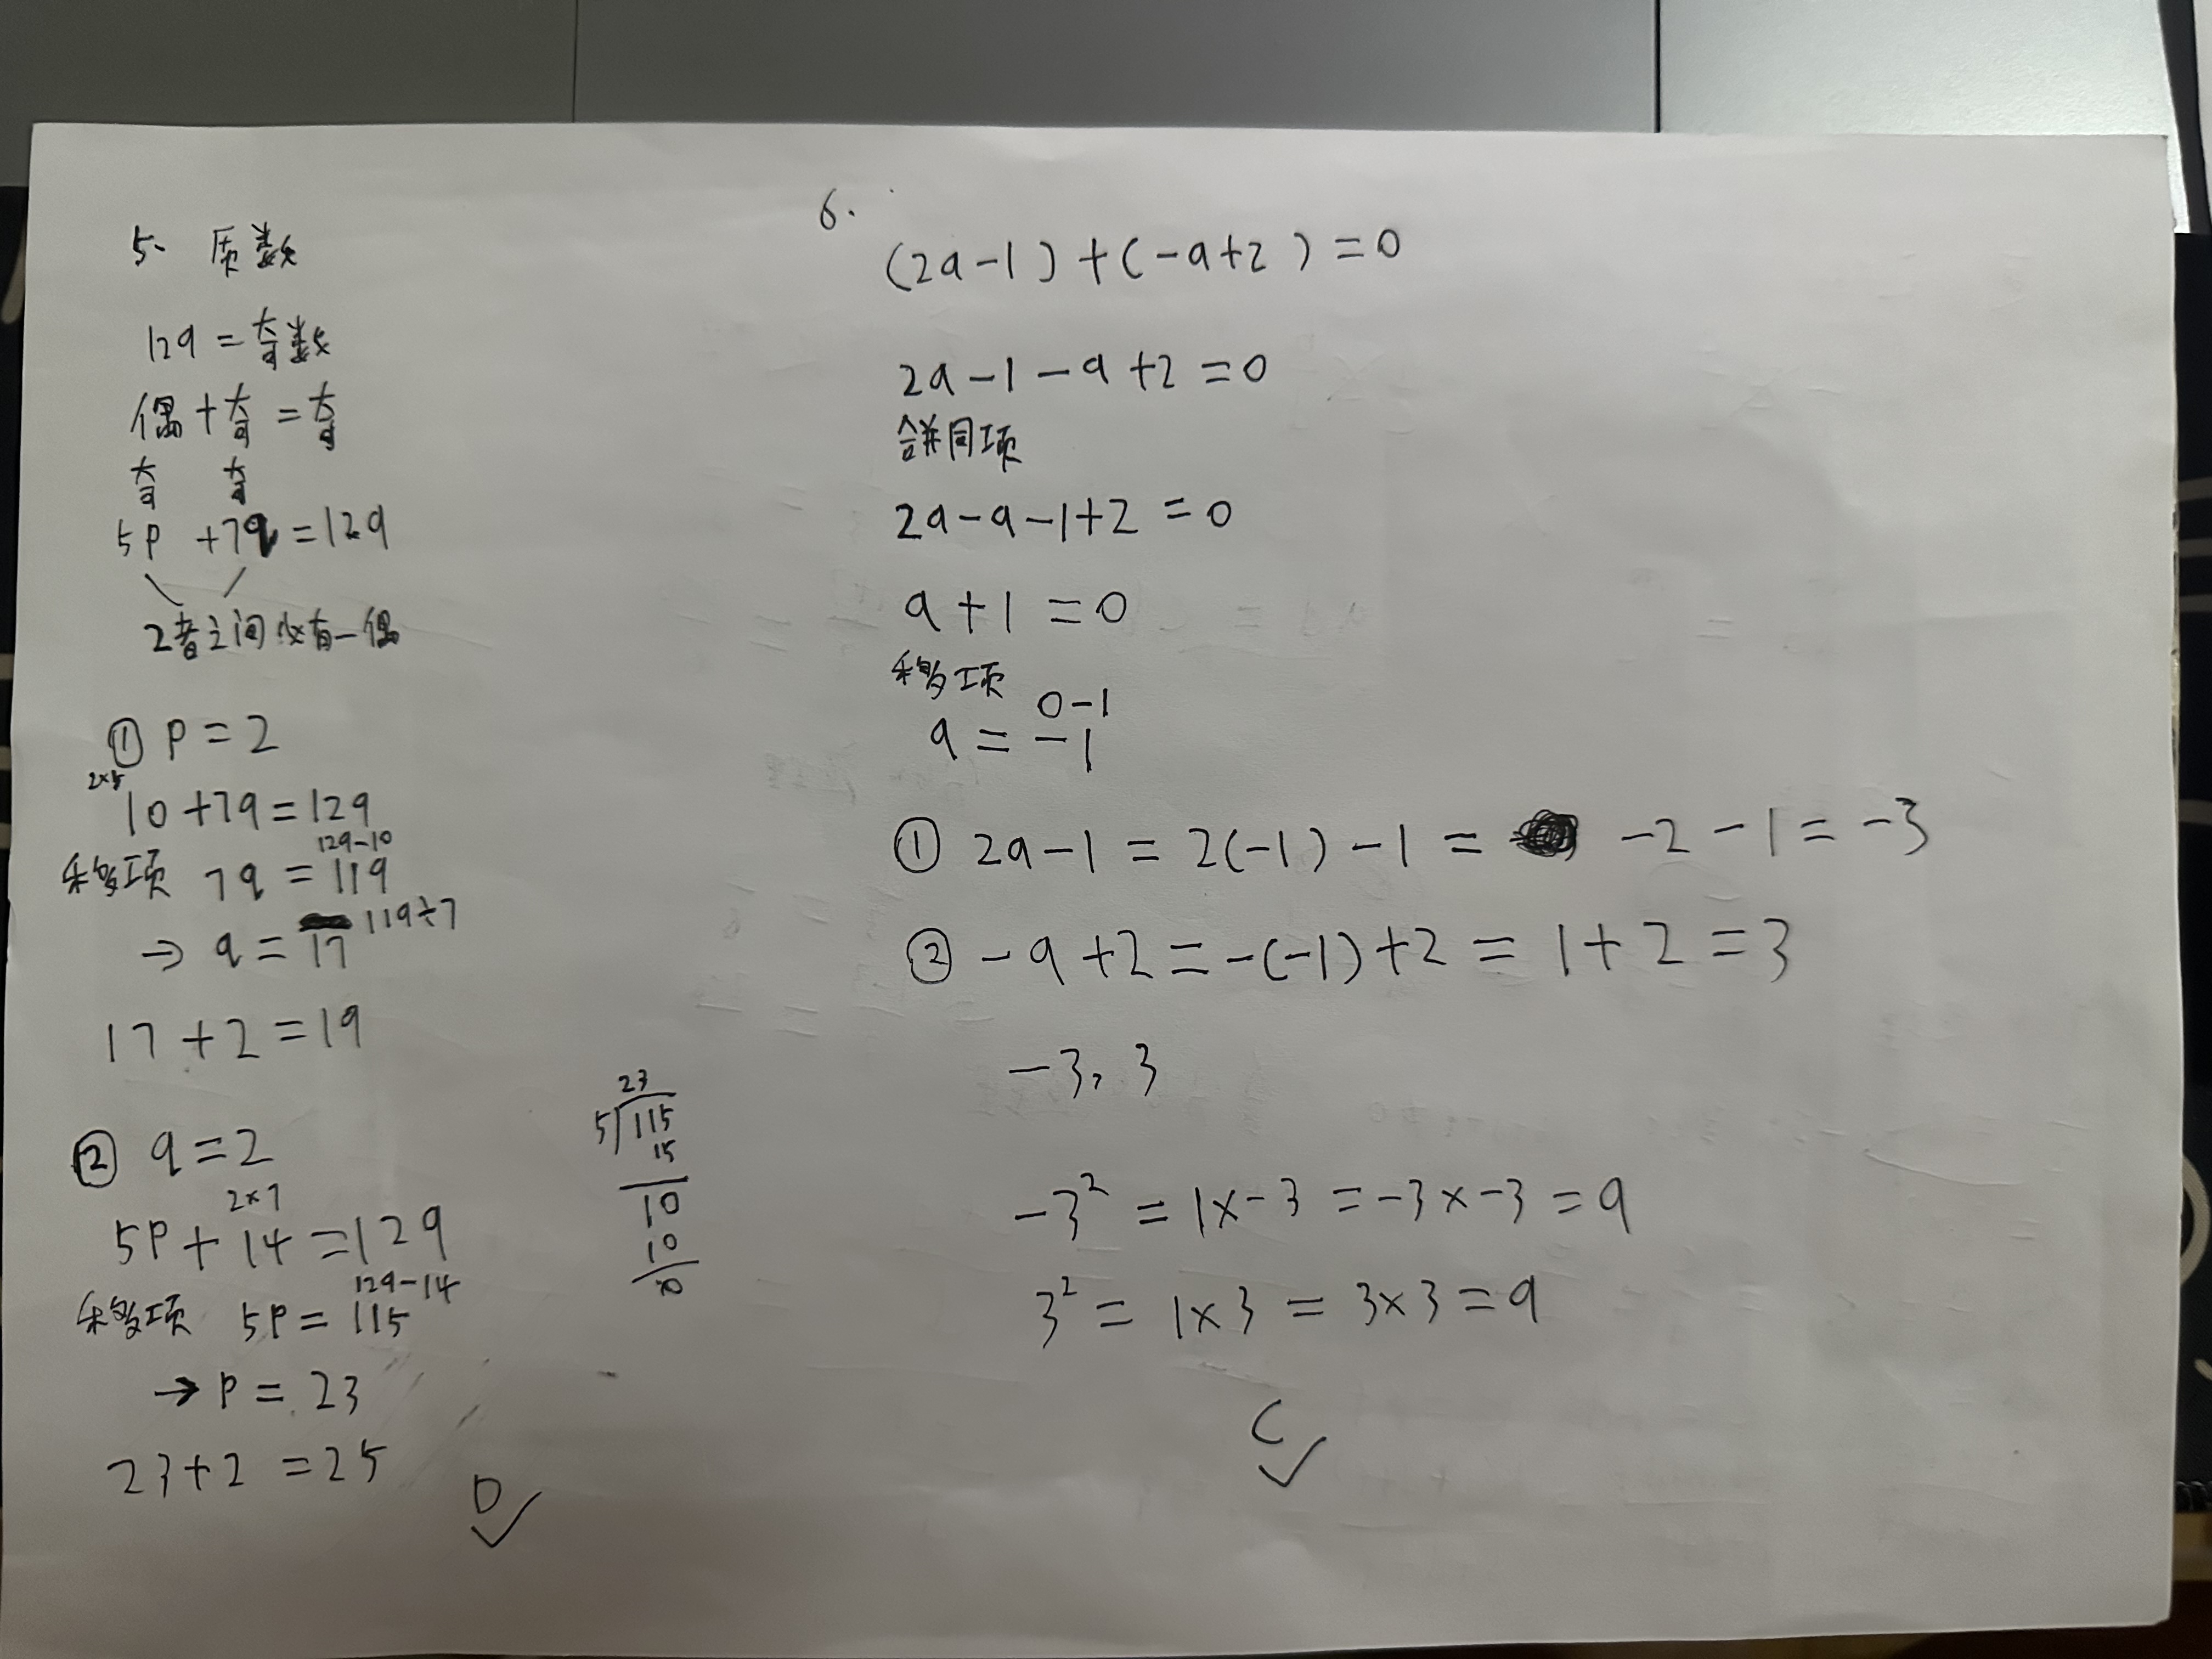 5. 质数
129 = 奇数
偶 + 奇 = 奇
奇 奇
5P + 7q = 129
2者之间必有一偶
① P = 2
2×5
10 + 7q = 129
129-10
移项 7q = 119
→ q = 17 119÷7
17 + 2 = 19
② q = 2
2×7
5P + 14 = 129
129-14
移项 5P = 115
→ P = 23
23 + 2 = 25
D✓
23
5 115
15
10
10
0
6.
(2a-1) + (-a+2) = 0
2a - 1 - a + 2 = 0
合并同项
2a - a - 1 + 2 = 0
a + 1 = 0
移项
0-1
a = -1
① 2a - 1 = 2(-1) - 1 = -2 - 1 = -3
② -a + 2 = -(-1) + 2 = 1 + 2 = 3
-3, 3
-3² = 1×-3 = -3×-3 = 9
3² = 1×3 = 3×3 = 9
C✓